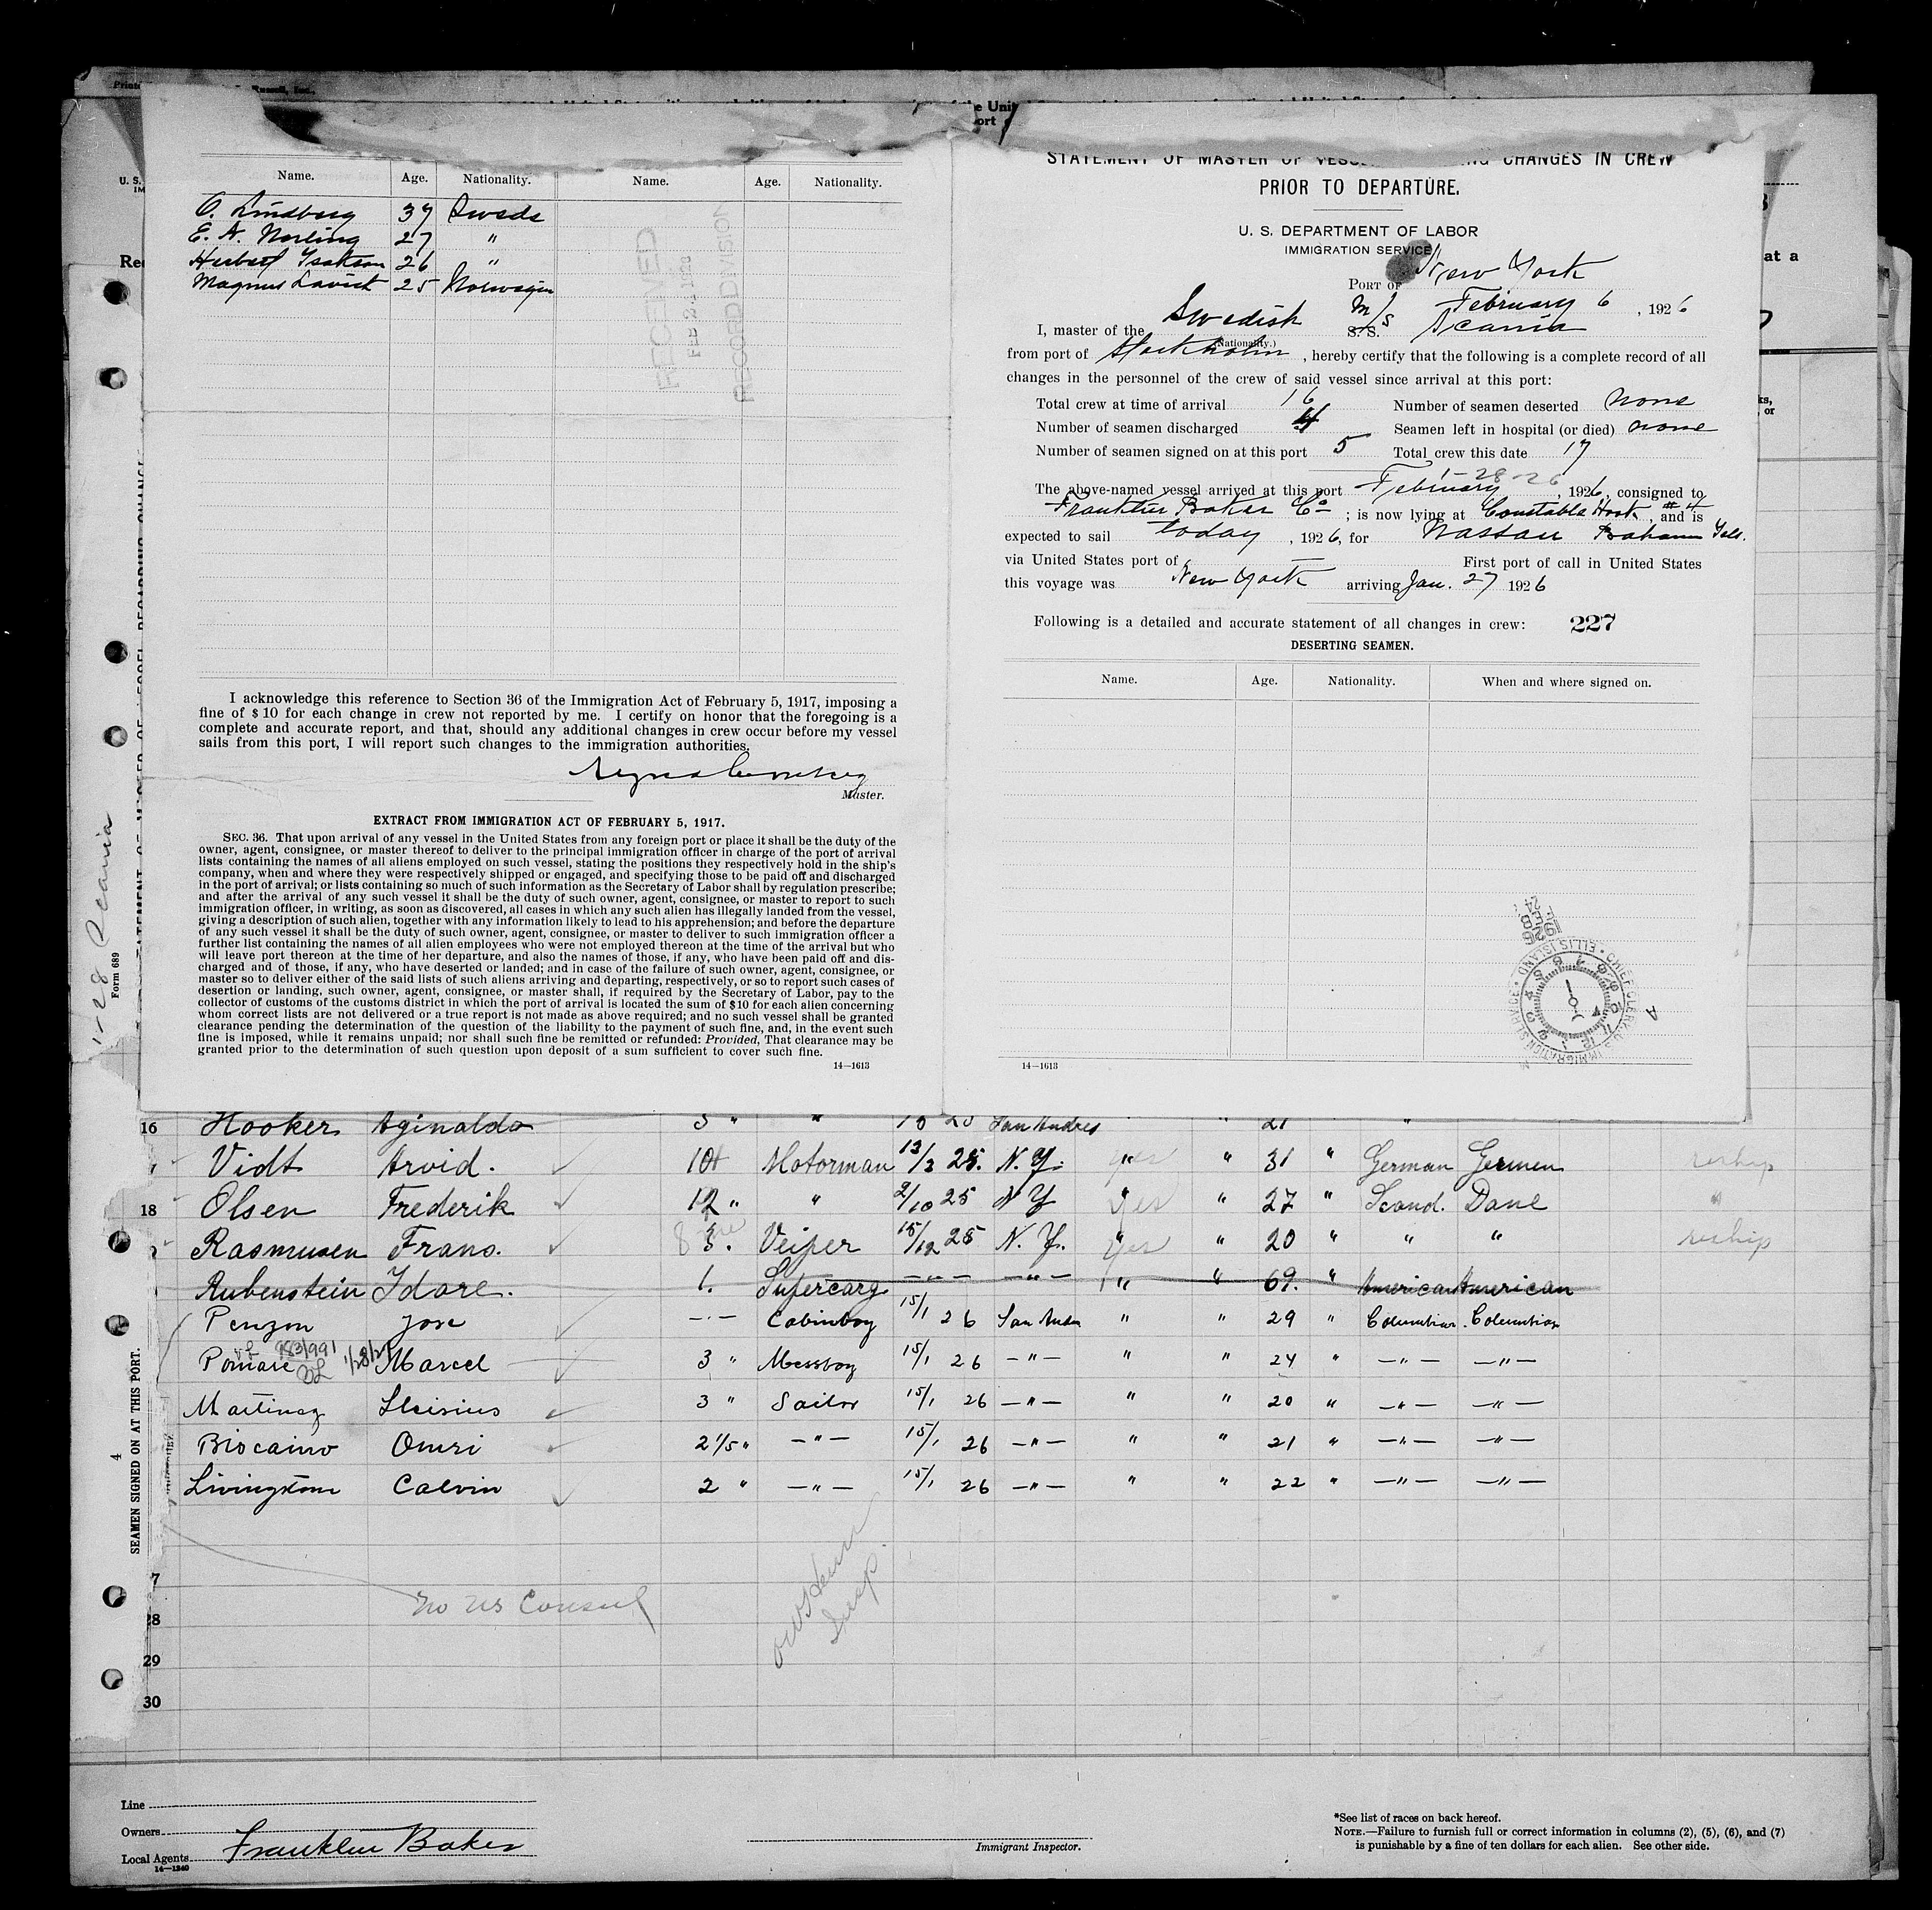 Name. Age. Nationality. Name. Age. Nationality.
O. Lindberg 37 Swede
E. A. Norling 27 "
Herbert Isakson 26 "
Magnus 25 Norwegin
RECEIVED
RECORD DIVISION
I acknowledge this reference to Section 36 of the Immigration Act of February 5, 1917, imposing a
fine of $10 for each change in crew not reported by me. I certify on honor that the foregoing is a
complete and accurate report, and that, should any additional changes in crew occur before my vessel
sails from this port, I will report such changes to the immigration authorities.
Master.
EXTRACT FROM IMMIGRATION ACT OF FEBRUARY 5, 1917.
SEC. 36. That upon arrival of any vessel in the United States from any foreign port or place it shall be the duty of the
owner, agent, consignee, or master thereof to deliver to the principal immigration officer in charge of the port of arrival
lists containing the names of all aliens employed on such vessel, stating the positions they respectively hold in the ship's
company, when and where they were respectively shipped or engaged, and specifying those to be paid off and discharged
in the port of arrival; or lists containing so much of such information as the Secretary of Labor shall by regulation prescribe;
and after the arrival of any such vessel it shall be the duty of such owner, agent, consignee, or master to report to such
immigration officer, in writing, as soon as discovered, all cases in which any such alien has illegally landed from the vessel,
giving a description of such alien, together with any information likely to lead to his apprehension; and before the departure
of any such vessel it shall be the duty of such owner, agent, consignee, or master to deliver to such immigration officer a
further list containing the names of all alien employees who were not employed thereon at the time of the arrival but who
will leave port thereon at the time of her departure, and also the names of those, if any, who have been paid off and dis-
charged and of those, if any, who have deserted or landed; and in case of the failure of such owner, agent, consignee, or
master so to deliver either of the said lists of such aliens arriving and departing, respectively, or so to report such cases of
desertion or landing, such owner, agent, consignee, or master shall, if required by the Secretary of Labor, pay to the
collector of customs of the customs district in which the port of arrival is located the sum of $10 for each alien concerning
whom correct lists are not delivered or a true report is not made as above required; and no such vessel shall be granted
clearance pending the determination of the question of the liability to the payment of such fine, and, in the event such
fine is imposed, while it remains unpaid; nor shall such fine be remitted or refunded: Provided, That clearance may be
granted prior to the determination of such question upon deposit of a sum sufficient to cover such fine.
14—1613
STATEMENT OF MASTER OF VESS CHANGES IN CREW
PRIOR TO DEPARTURE.
U. S. DEPARTMENT OF LABOR
IMMIGRATION SERVICE
PORT OF New York
February 6, 1926
I, master of the Swedish M/S S. S. Scania
(Nationality.)
from port of Stockholm, hereby certify that the following is a complete record of all
changes in the personnel of the crew of said vessel since arrival at this port:
Total crew at time of arrival 16 Number of seamen deserted none
Number of seamen discharged 4 Seamen left in hospital (or died) none
Number of seamen signed on at this port 5 Total crew this date 17
1-28-26
The above-named vessel arrived at this port February, 1926, consigned to
Franklin Baker Co; is now lying at Constable Hook #4, and is
expected to sail today, 1926, for Nassau Bahama Isls.
via United States port of First port of call in United States
this voyage was New York arriving Jan. 27 1926
Following is a detailed and accurate statement of all changes in crew: 227
DESERTING SEAMEN.
Name. Age. Nationality. When and where signed on.
1926 FEB 24
CHIEF CLERK U.S. IMMIGRATION SERVICE ELLIS ISLAND
14—1613
1-28 Scania
Form 689
SEAMEN SIGNED ON AT THIS PORT.
4
16 Hooker Aginaldo 3 " " San Andres " 21 "
Vidt Arvid. 10 Motorman 13/3 25. N. Y. " yes " 31 " German German reship
18 Olsen Frederik 12 " " 2/10 25 N Y " yes " 27 " Scand. Dane "
Rasmusen Frans. 3. Veiper 15/12 25 N. Y. " yes " 20 " " " reship
Rubenstein Idore. 1. Supercarg —"— —"— " " 69. " American American
Penzon Jose —"— Cabinboy 15/1 26 San Andr " " 29 " Columbian. Columbian
983/991 1/28/26
Pomare Marcel 3 " Messboy 15/1 26 —"— " " 24 " —"— —"—
Martinez 3 " Sailor 15/1 26 —"— " " 20 " —"— —"—
Biscaino Omri 2 1/5 " —"— 15/1 26 —"— " " 21 " —"— —"—
Livingstone Calvin 2 " —"— 15/1 26 —"— " " 22 " —"— —"—
No US Consul
Insp.
28
29
30
Line
Owners
Local Agents Franklin Baker
14—1240
Immigrant Inspector.
*See list of races on back hereof.
NOTE.—Failure to furnish full or correct information in columns (2), (5), (6), and (7)
is punishable by a fine of ten dollars for each alien. See other side.